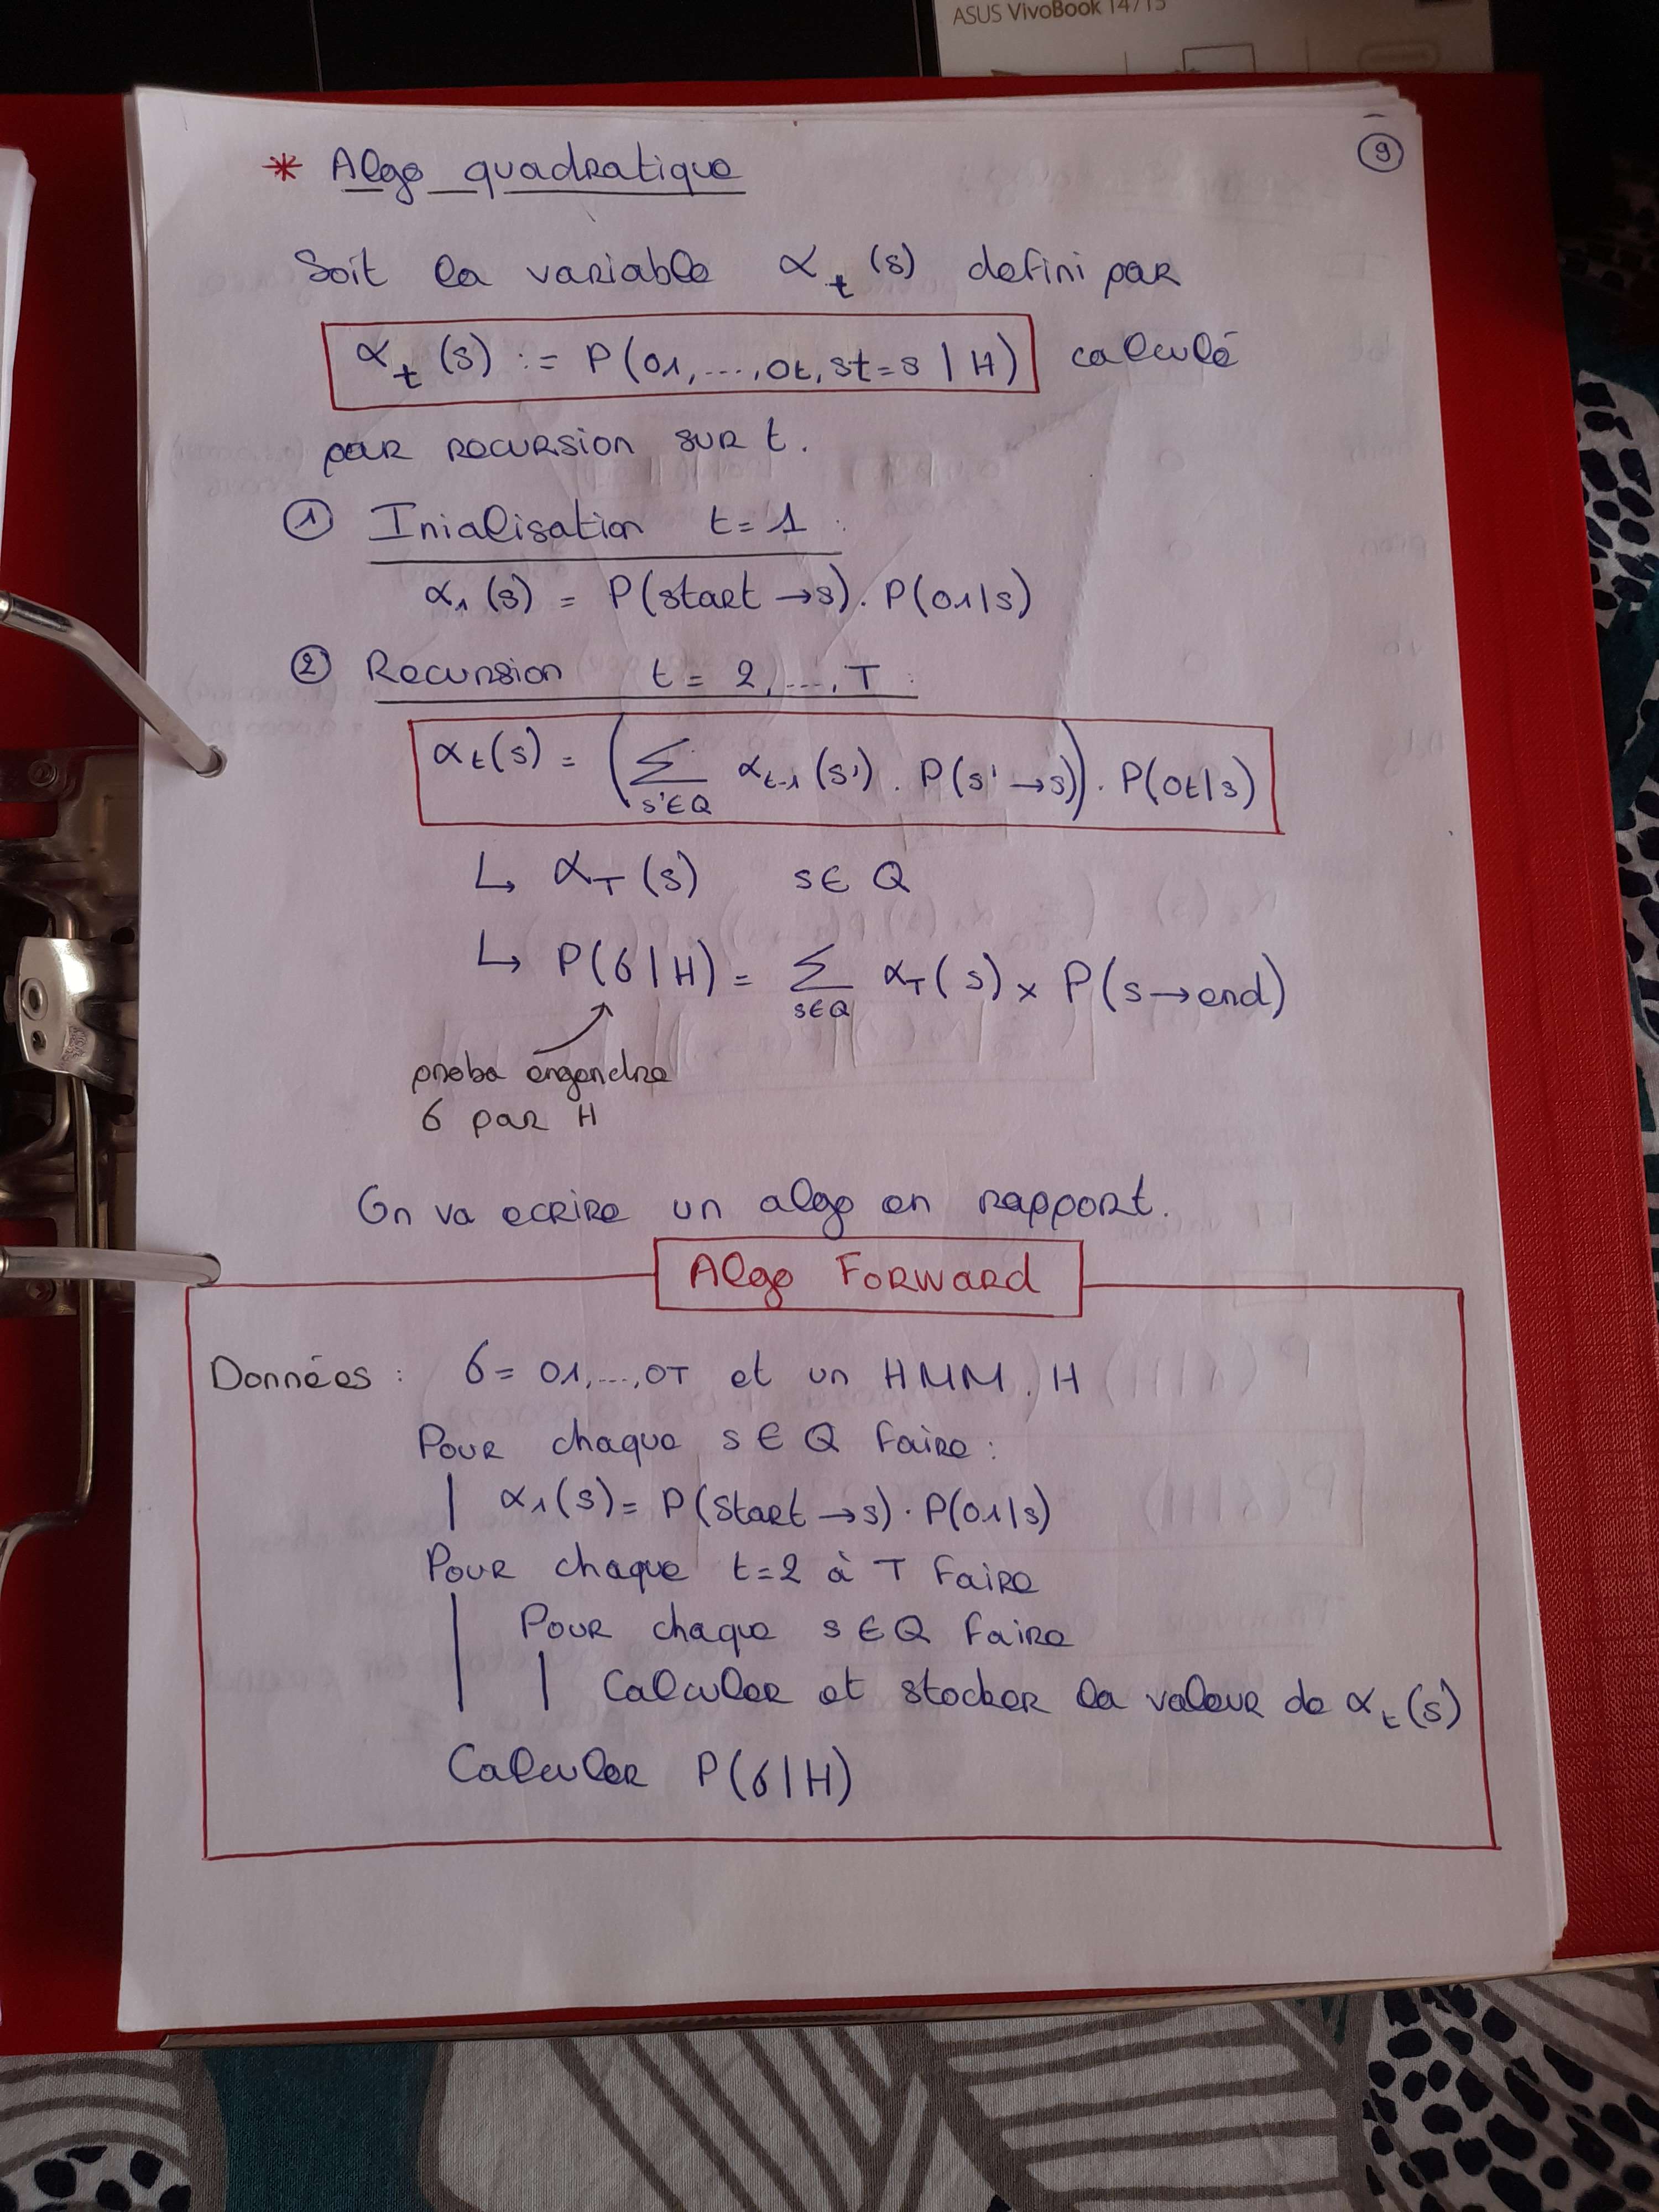 ASUS VivoBook 14/15
9
* Algo quadratique
Soit la variable α_t (s) defini par
α_t (s) := P(o1, ..., ot, st = s | H) calculé
par recursion sur t.
① Inialisation t = 1 :
α_1 (s) = P(start → s) . P(o1 | s)
② Recursion t = 2, ..., T :
α_t (s) = ( ∑_{s'∈Q} α_{t-1} (s') . P(s' → s) ) . P(ot | s)
↳ α_T (s) s ∈ Q
↳ P(σ | H) = ∑_{s∈Q} α_T (s) × P(s → end)
proba engendre
σ par H
On va ecrire un algo en rapport.
Algo Forward
Données : σ = o1, ..., oT et un HMM . H
Pour chaque s ∈ Q faire :
| α_1 (s) = P(start → s) . P(o1 | s)
Pour chaque t = 2 à T faire
Pour chaque s ∈ Q faire
Calculer et stocker la valeur de α_t (s)
Calculer P(σ | H)